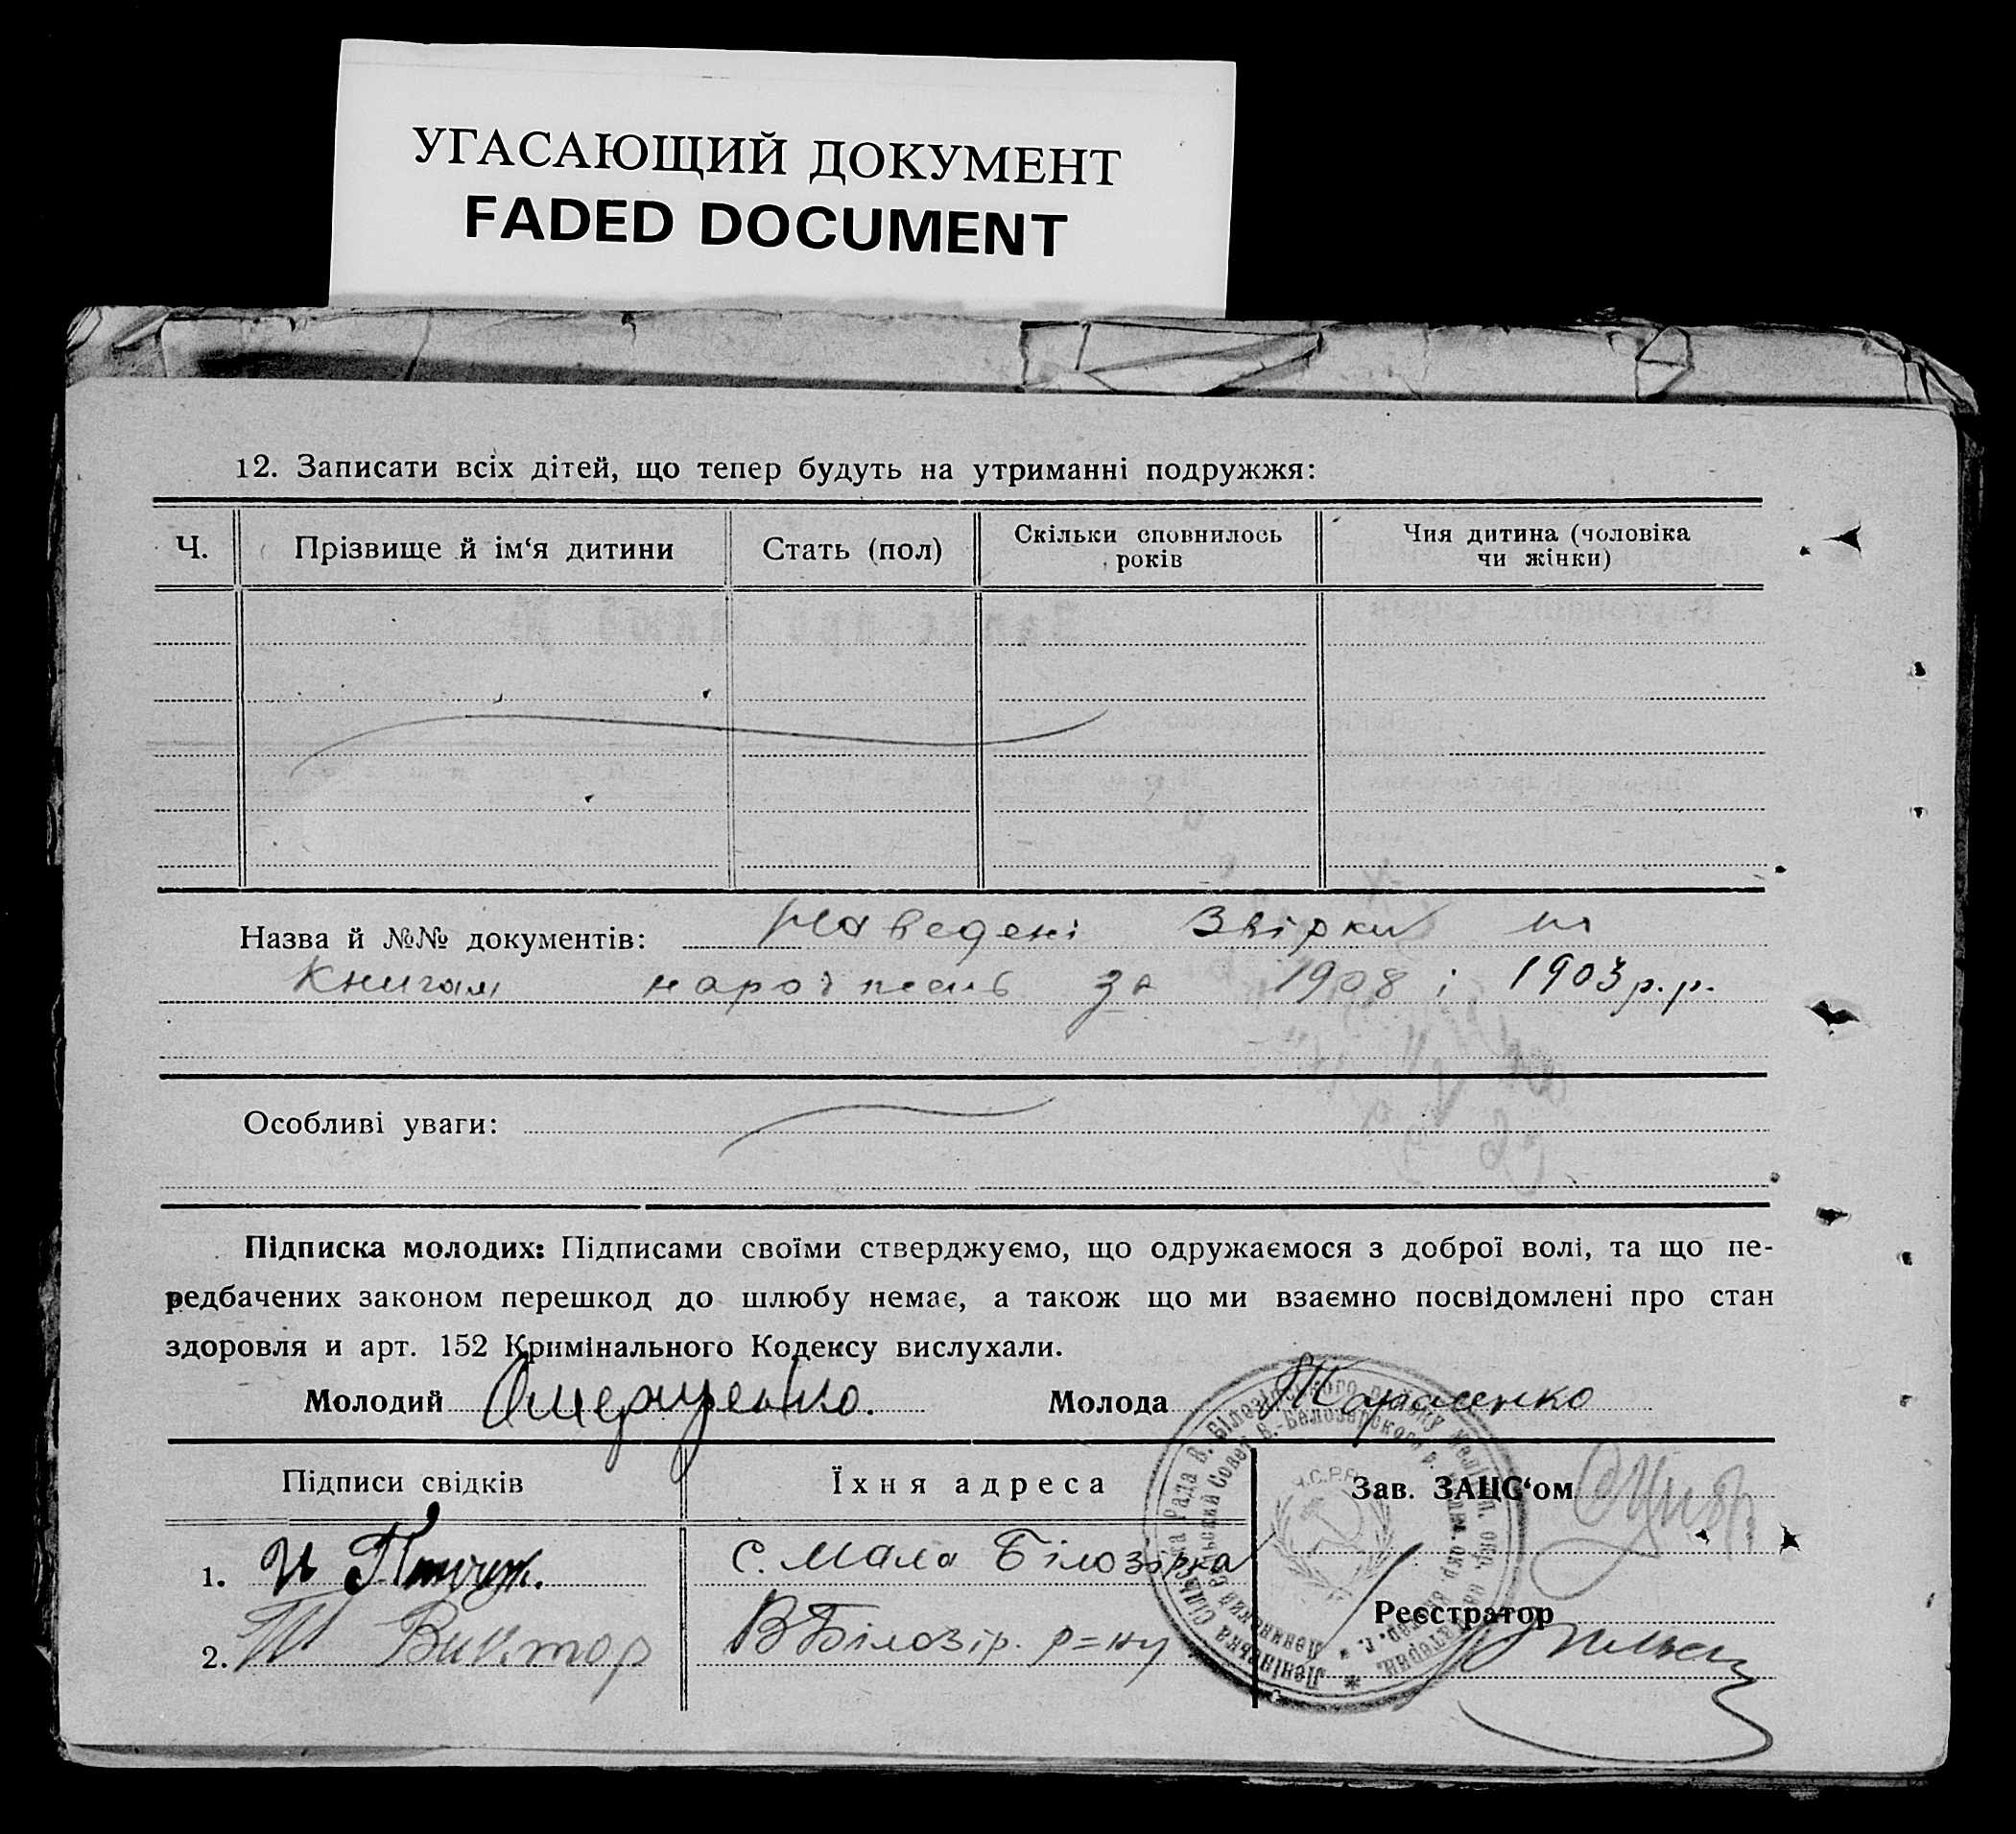 УГАСАЮЩИЙ ДОКУМЕНТ
FADED DOCUMENT
12. Записати всіх дітей, що тепер будуть на утриманні подружжя:
Ч. Прізвище й ім‘я дитини Стать (пол) Скільки сповнилось років Чия дитина (чоловіка чи жінки)
Назва й №№ документів: Наведені Звірки по
Книгам народжень за 1908 і 1903 р.р.
Особливі уваги:
Підписка молодих: Підписами своїми стверджуємо, що одружаємося з доброї волі, та що пе-
редбачених законом перешкод до шлюбу немає, а також що ми взаємно посвідомлені про стан
здоровля и арт. 152 Кримінального Кодексу вислухали.
Молодий Молода Тарасенко
Підписи свідків Їхня адреса Зав. ЗАЦС‘ом
1. с. Мала Білозірка
Реєстратор
2. Виктор В Білозір. р=ну
У.С.Р.Р.